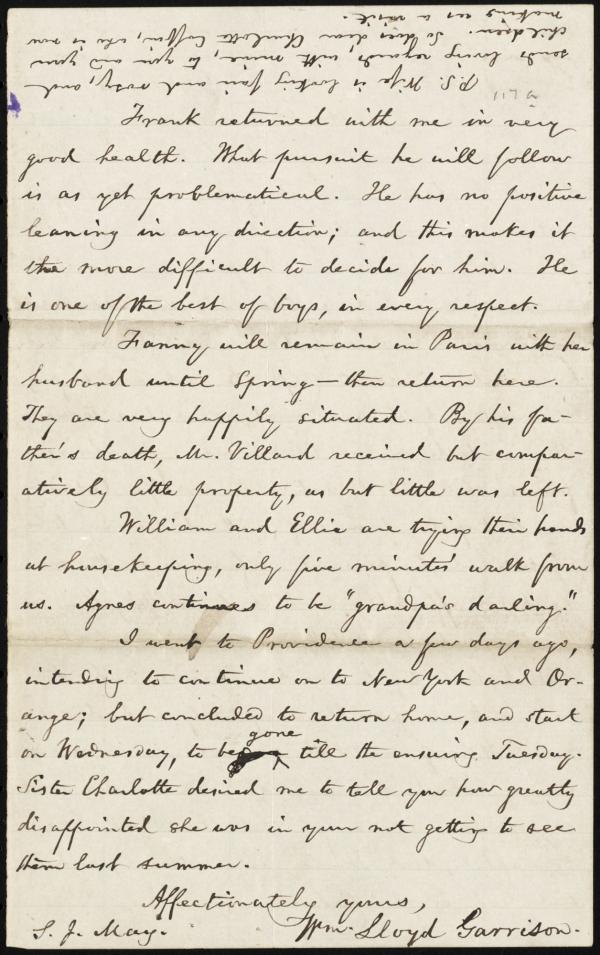 P.S. Wife is looking fair and rosy, and
sends loving regards, with mine, to you and your
children. So does dear Charlotte Coffin, who is now
making us a visit.
Frank returned with me in very
good health. What pursuit he will follow
is as yet problematical. He has no positive
leaning in any direction; and this makes it
the more difficult to decide for him. He
is one of the best of boys, in every respect.
Fanny will remain in Paris with her
husband until Spring—then return here.
They are very happily situated. By his fa-
ther's death, Mr. Villard received but compar-
atively little property, as but little was left.
William and Ellie are trying their hands
at housekeeping, only five minutes' walk from
us. Agnes continues to be "grandpa's darling."
I went to Providence a few days ago,
intending to continue on to New York and Or-
ange; but concluded to return home, and start
on Wednesday, to be gone till the ensuing Tuesday.
Sister Charlotte desired me to tell you how greatly
disappointed she was in your not getting to see
them last summer.
Affectionately yours,
S. J. May. Wm. Lloyd Garrison.